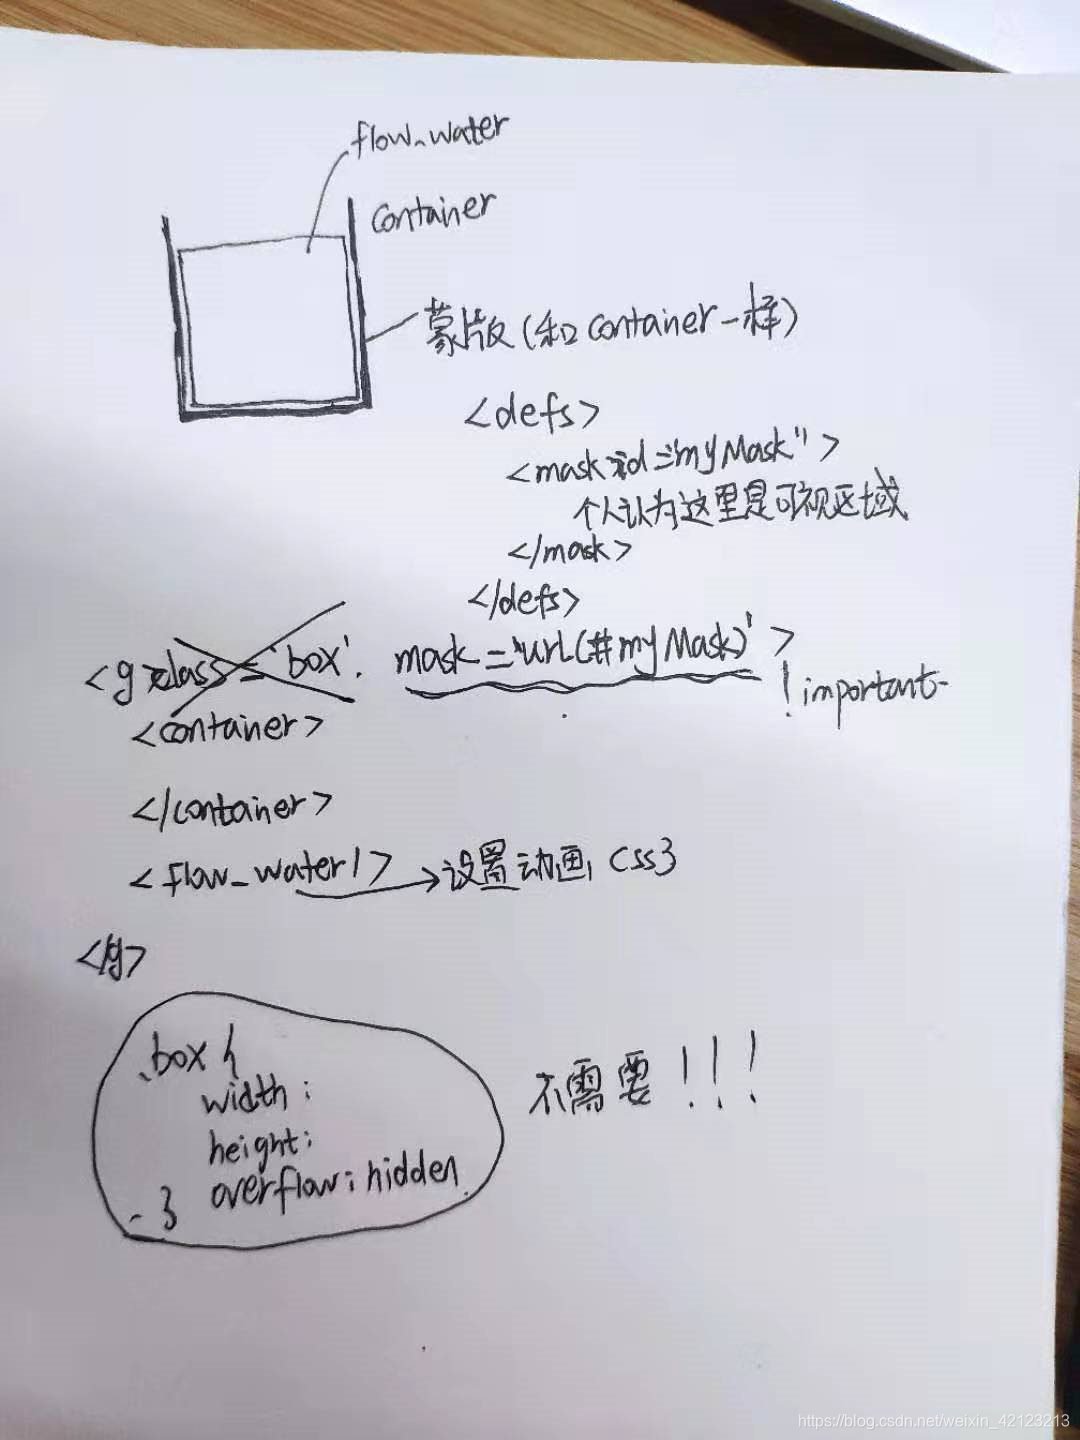 flow_water
Container
蒙版(和container一样)
<defs>
<mask id="myMask">
个人认为这里是可视区域
</mask>
</defs>
<g class='box'. mask='url(#myMask)'>
!important
<container>
</container>
<flow_water/> → 设置动画 CSS3
</g>
.box {
width:
height:
overflow: hidden
}
不需要!!!
https://blog.csdn.net/weixin_42123213